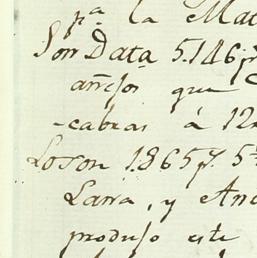 pª la Mat
Son Data 5.146 p
añejos que
cabras á 12
Loson 1.865 p 5
Larra, y And
produjo este